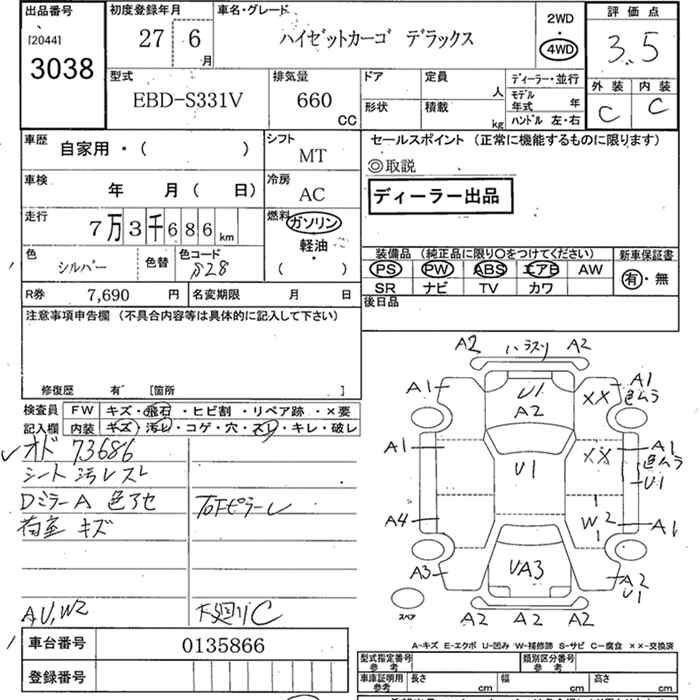 出品番号 初度登録年月 車名・グレード 2WD 評価点
[2044] 27 6 ハイゼットカーゴ デラックス ・ 3.5
3038 月 4WD
型式 排気量 ドア 定員 ディーラー・並行 外装 内装
EBD-S331V 660 CC 人 モデル年式 年 C C
形状 積載 kg ハンドル 左・右
車歴 自家用・( ) シフト MT セールスポイント (正常に機能するものに限ります)
◎取説
車検 年 月 ( 日) 冷房 AC ディーラー出品
走行 7万3千686km 燃料 ガソリン
軽油・
( )
色 シルバー 色替 色コード S28 装備品 (純正品に限り○をつけてください) 新車保証書
PS PW ABS エアB AW 有・無
R券 7,690 円 名変期限 月 日 SR ナビ TV カワ
注意事項申告欄 (不具合内容等は具体的に記入して下さい) 後日品
修復歴 有 [箇所 ]
検査員 FW キズ・飛石・ヒビ割・リペア跡・×要
記入欄 内装 キズ・汚レ・コゲ・穴・スレ・キレ・破レ
オド 73686
シート 汚レスレ
DミラーA 色アセ
荷室 キズ
A,U,W2 下廻りC
A2 A2
A1 U1 XX A1
A2 色ムラ
A1 U1 XX A1
色ムラ
U1
A4 W2 A1
A3 UA3 A2
U1
スペア A2 A2 A2
車台番号 0135866
A-キズ E-エクボ U-凹み W-補修跡 S-サビ C-腐食 ××-交換済
登録番号 型式指定番号 参考 類別区分番号 参考
車庫証明用 参考 長さ cm 幅 cm 高さ cm